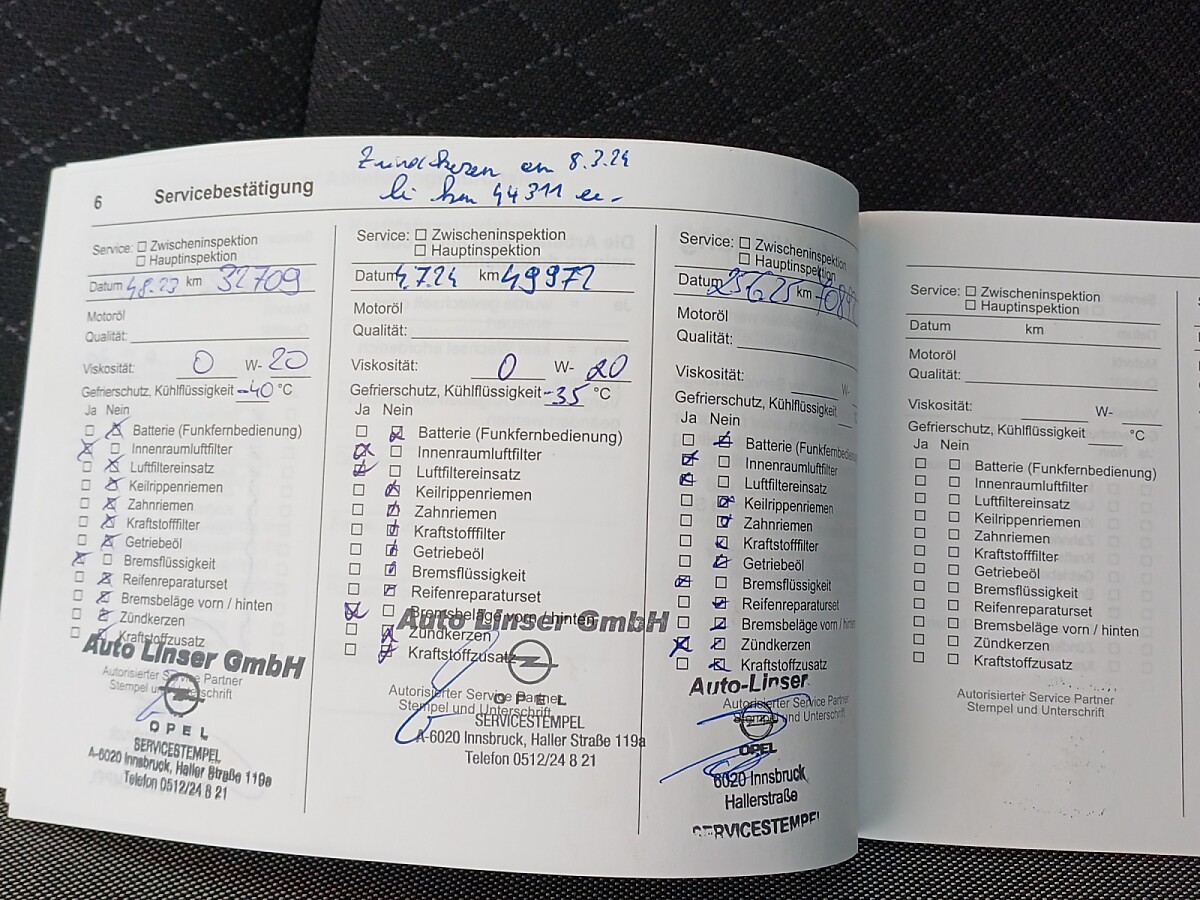 Zündkerzen am 8.3.24
bei km 44311 er-
6 Servicebestätigung
Service: Zwischeninspektion
Hauptinspektion
Datum 4.8.23 km 32709
Motoröl
Qualität:
Viskosität: 0 W- 20
Gefrierschutz, Kühlflüssigkeit -40 °C
Ja Nein
Batterie (Funkfernbedienung)
Innenraumluftfilter
Luftfiltereinsatz
Keilrippenriemen
Zahnriemen
Kraftstofffilter
Getriebeöl
Bremsflüssigkeit
Reifenreparaturset
Bremsbeläge vorn / hinten
Zündkerzen
Kraftstoffzusatz
Auto Linser GmbH
Autorisierter Service Partner
Stempel und Unterschrift
OPEL
SERVICESTEMPEL
A-6020 Innsbruck, Haller Straße 119a
Telefon 0512/24 8 21
Service: Zwischeninspektion
Hauptinspektion
Datum 4.7.24 km 49972
Motoröl
Qualität:
Viskosität: 0 W- 20
Gefrierschutz, Kühlflüssigkeit -35 °C
Ja Nein
Batterie (Funkfernbedienung)
Innenraumluftfilter
Luftfiltereinsatz
Keilrippenriemen
Zahnriemen
Kraftstofffilter
Getriebeöl
Bremsflüssigkeit
Reifenreparaturset
Bremsbeläge vorn / hinten
Auto Linser GmbH
Zündkerzen
Kraftstoffzusatz
Autorisierter Service Partner
OPEL
Stempel und Unterschrift
SERVICESTEMPEL
A-6020 Innsbruck, Haller Straße 119a
Telefon 0512/24 8 21
Service: Zwischeninspektion
Hauptinspektion
Datum 23625 km
Motoröl
Qualität:
Viskosität: W-
Gefrierschutz, Kühlflüssigkeit
Ja Nein
Batterie (Funkfernbedienung)
Innenraumluftfilter
Luftfiltereinsatz
Keilrippenriemen
Zahnriemen
Kraftstofffilter
Getriebeöl
Bremsflüssigkeit
Reifenreparaturset
Bremsbeläge vorn / hinten
Zündkerzen
Kraftstoffzusatz
Auto-Linser
Autorisierter Service Partner
Stempel und Unterschrift
OPEL
6020 Innsbruck
Hallerstraße
SERVICESTEMPEL
Service: Zwischeninspektion
Hauptinspektion
Datum km
Motoröl
Qualität:
Viskosität: W-
Gefrierschutz, Kühlflüssigkeit °C
Ja Nein
Batterie (Funkfernbedienung)
Innenraumluftfilter
Luftfiltereinsatz
Keilrippenriemen
Zahnriemen
Kraftstofffilter
Getriebeöl
Bremsflüssigkeit
Reifenreparaturset
Bremsbeläge vorn / hinten
Zündkerzen
Kraftstoffzusatz
Autorisierter Service Partner
Stempel und Unterschrift